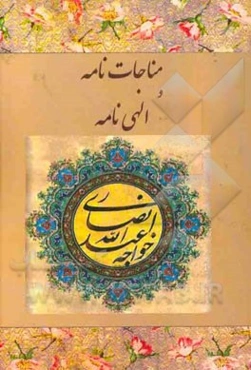 مناجات نامه
و
الهی نامه
خواجه عبدالله انصاری